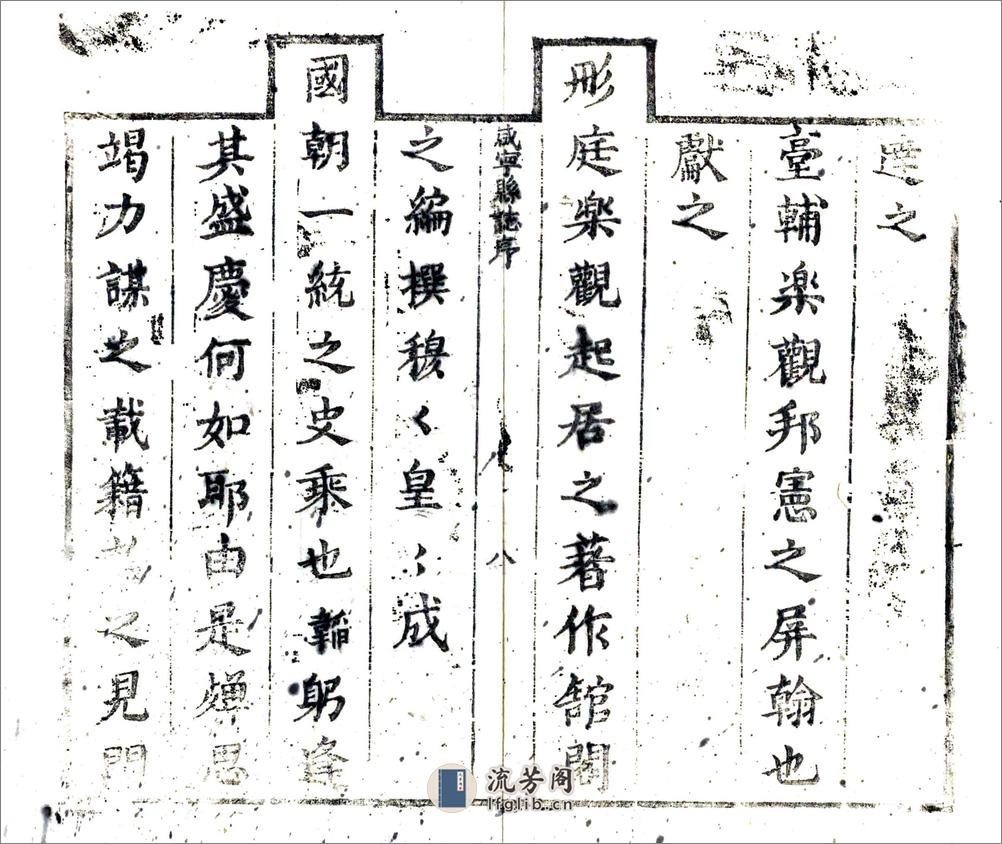 達之
臺輔楽觀邦憲之屏翰也
獻之
彤庭楽觀起居之著作舘閣
咸寧縣誌序
八
之編撰穆々皇々成
國朝一統之史乘也韜躬逢
其盛慶何如耶由是殫思
竭力謀之載籍考之見聞
流芳阁
lfglib.cn